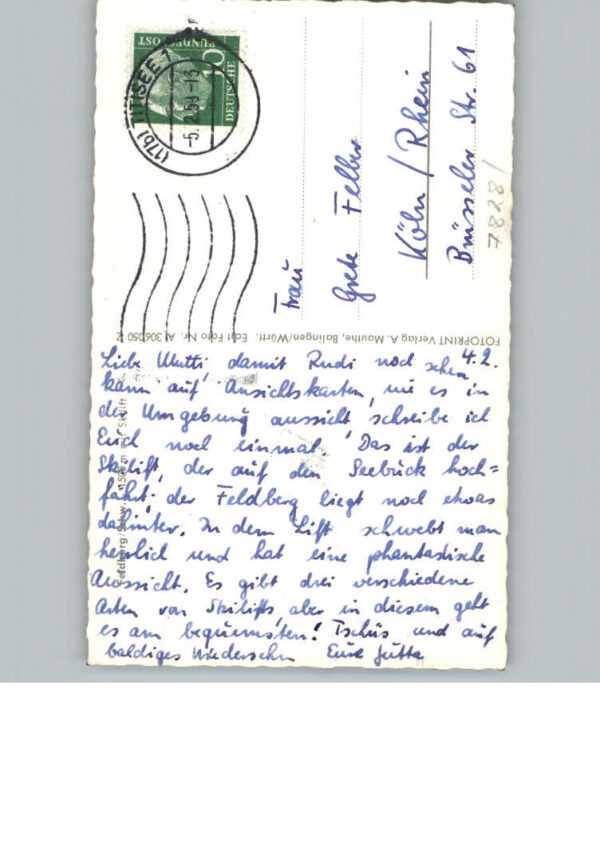 DEUTSCHE
BUNDESPOST
10
(17b) TITISEE 1
-5.2.59-13
Frau
Grete Felber
Köln / Rhein
Brüsseler Str. 61
7828/
FOTOPRINT Verlag A. Mauthe, Balingen/Württ. Echt Foto Nr. AL 306050
Feldberg/Schw.
4.2.
Liebe Mutti, damit Rudi noch sehen
kann auf Ansichtskarten, wie es in
der Umgebung aussieht schreibe ich
Euch noch einmal. Das ist der
Skilift, der auf den Seebuck hoch=
fährt; der Feldberg liegt noch etwas
dahinter. In dem Lift schwebt man
herrlich und hat eine phantastische
Aussicht. Es gibt drei verschiedene
Arten von Skilifts aber in diesem geht
es am bequemsten! Tschüs und auf
baldiges Wiedersehn Eure Jutta